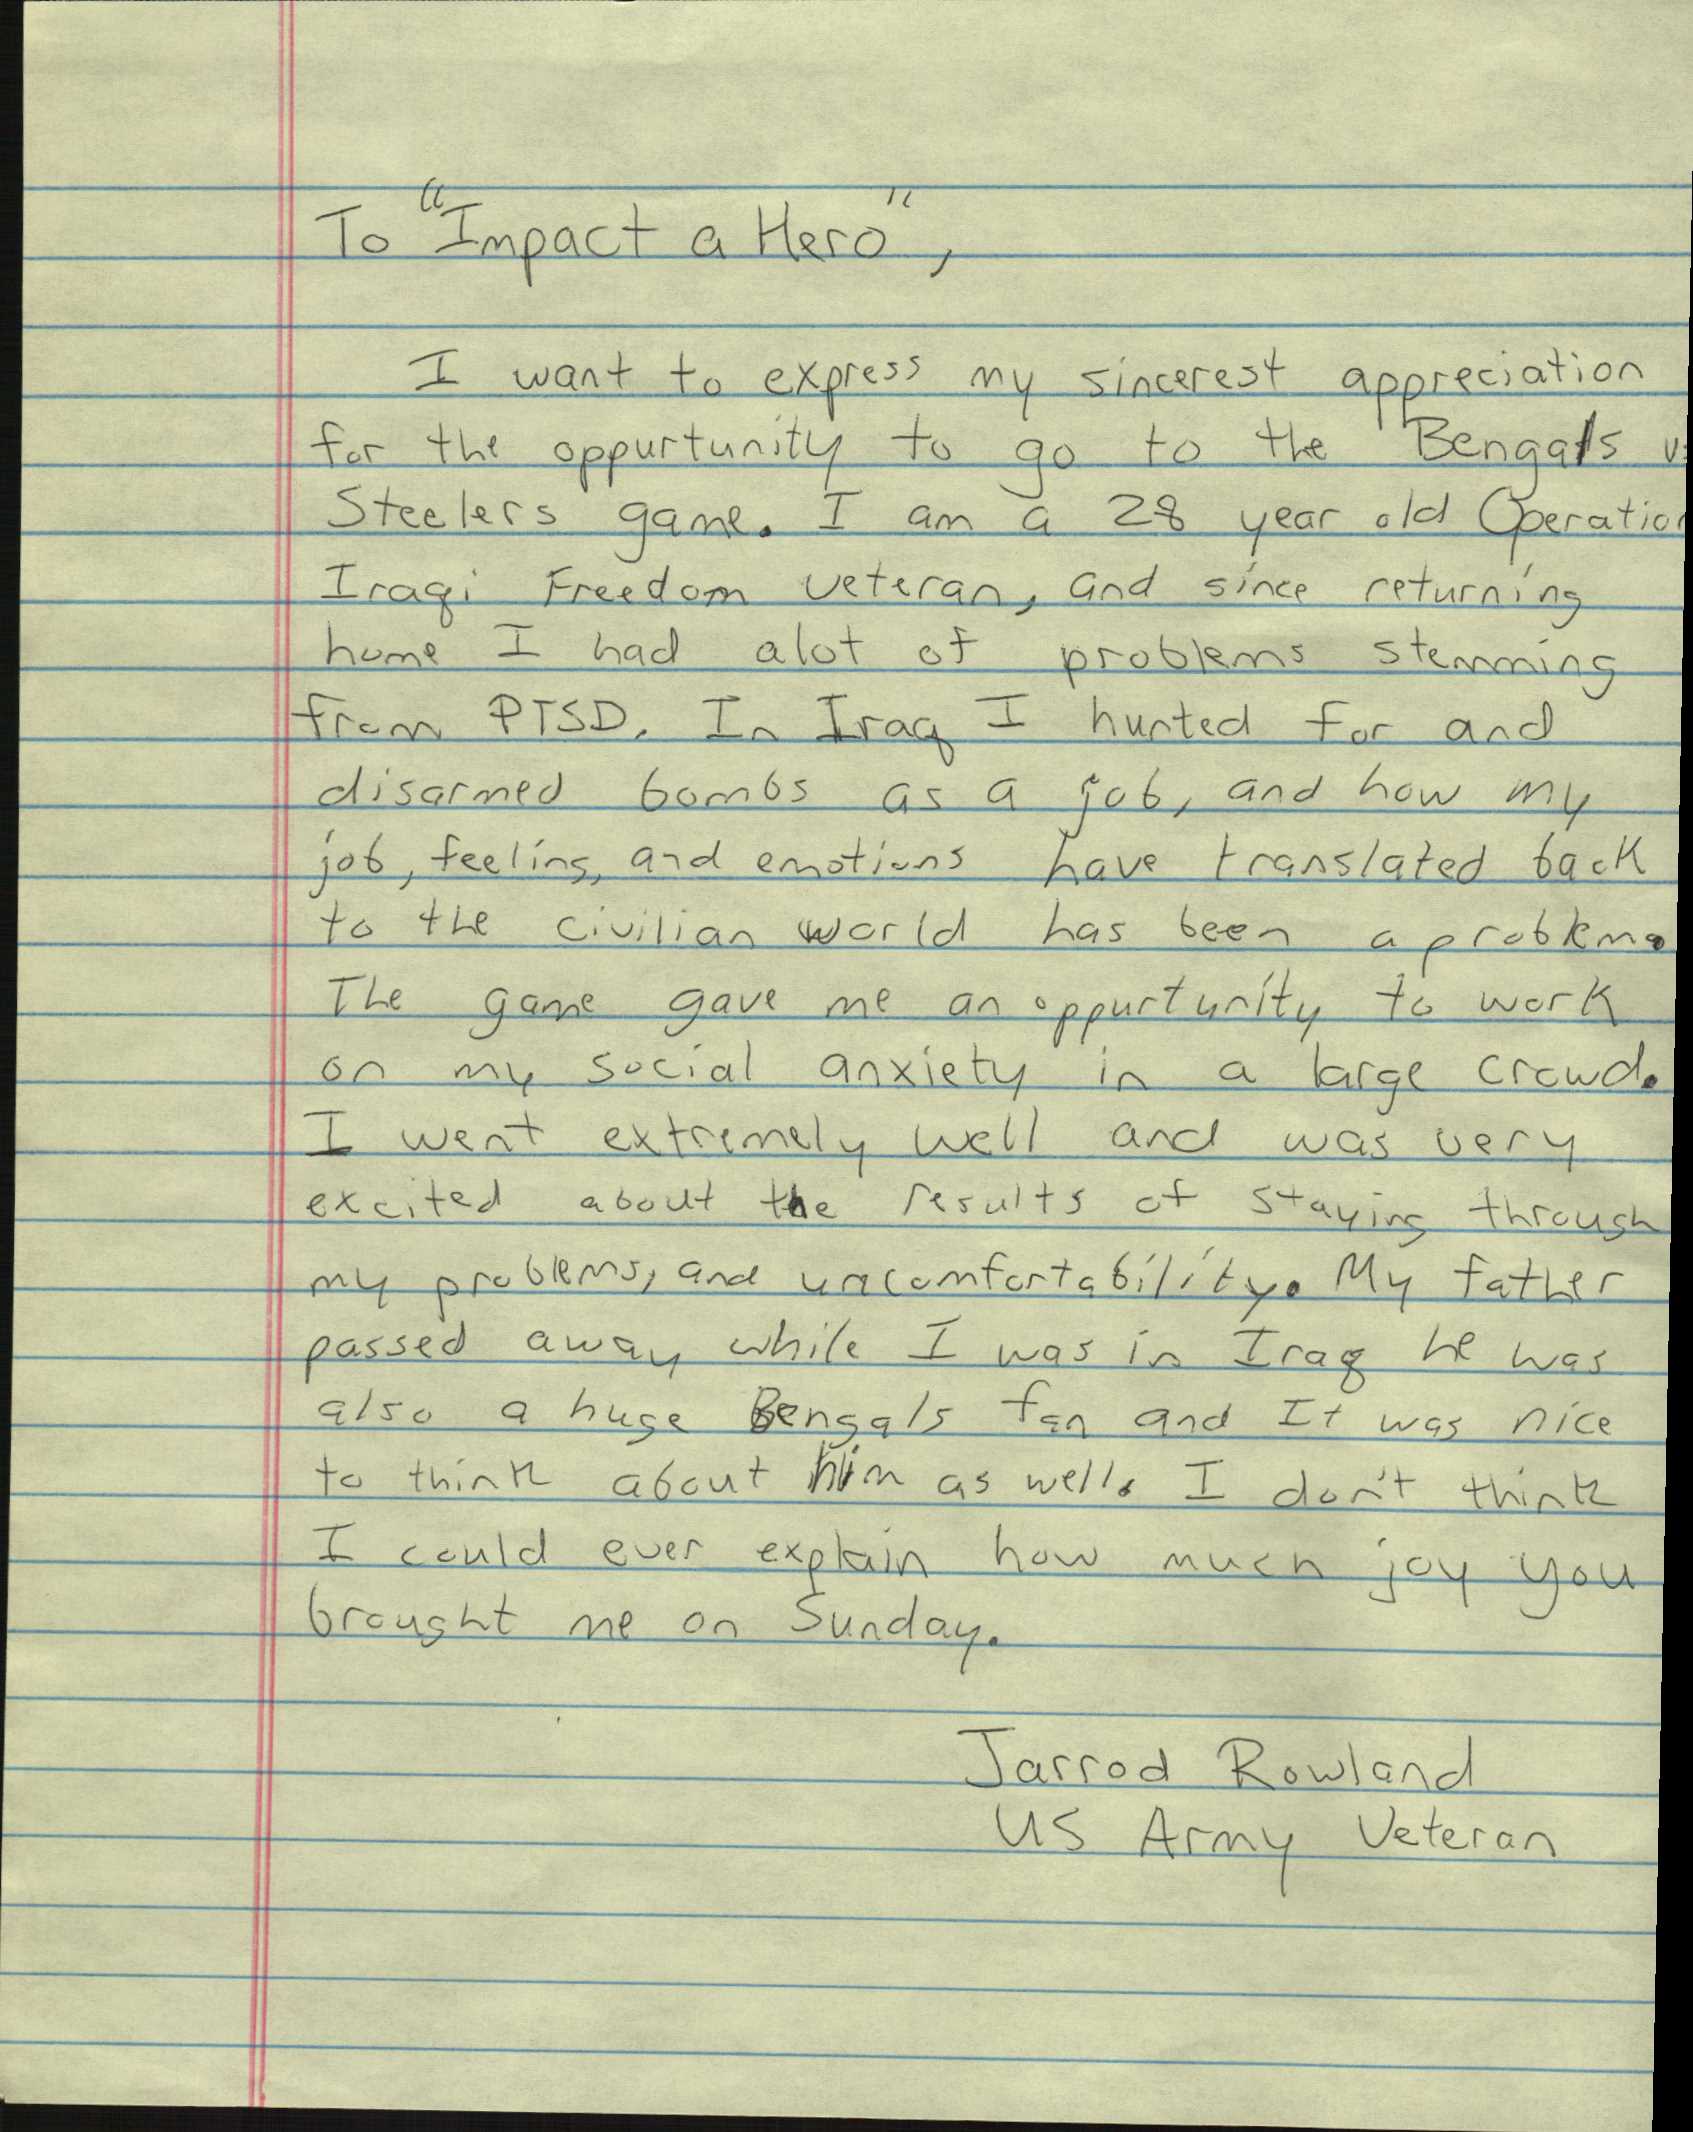 To "Impact a Hero",
I want to express my sincerest appreciation
for the oppurtunity to go to the Bengals vs
Steelers game. I am a 28 year old Operation
Iraqi Freedom veteran, and since returning
home I had alot of problems stemming
from PTSD. In Iraq I hunted for and
disarmed bombs as a job, and how my
job, feeling, and emotions have translated back
to the civilian world has been a problem.
The game gave me an oppurtunity to work
on my social anxiety in a large crowd.
I went extremely well and was very
excited about the results of staying through
my problems, and uncomfortability. My father
passed away while I was in Iraq he was
also a huge Bengals fan and It was nice
to think about him as well. I don't think
I could ever explain how much joy you
brought me on Sunday.
Jarrod Rowland
US Army Veteran